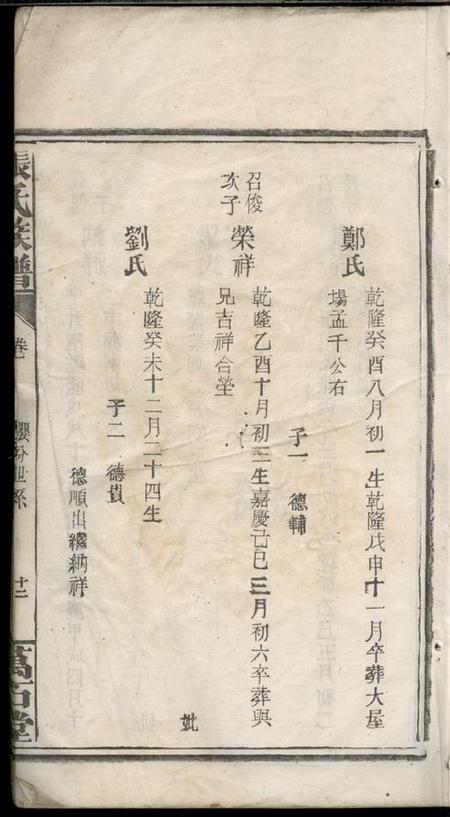 鄭氏
乾隆癸酉八月初一生乾隆戊申十一月卒葬大屋
場孟千公右
子一 德輔
召俊
次子
榮祥
乾隆乙酉十月初三生嘉慶己巳三月初六卒葬與
兄吉祥合塋
妣
劉氏
乾隆癸未十二月二十四生
子二 德貴
德順出繼納祥
張氏族譜
卷
世系
十二
萬石堂